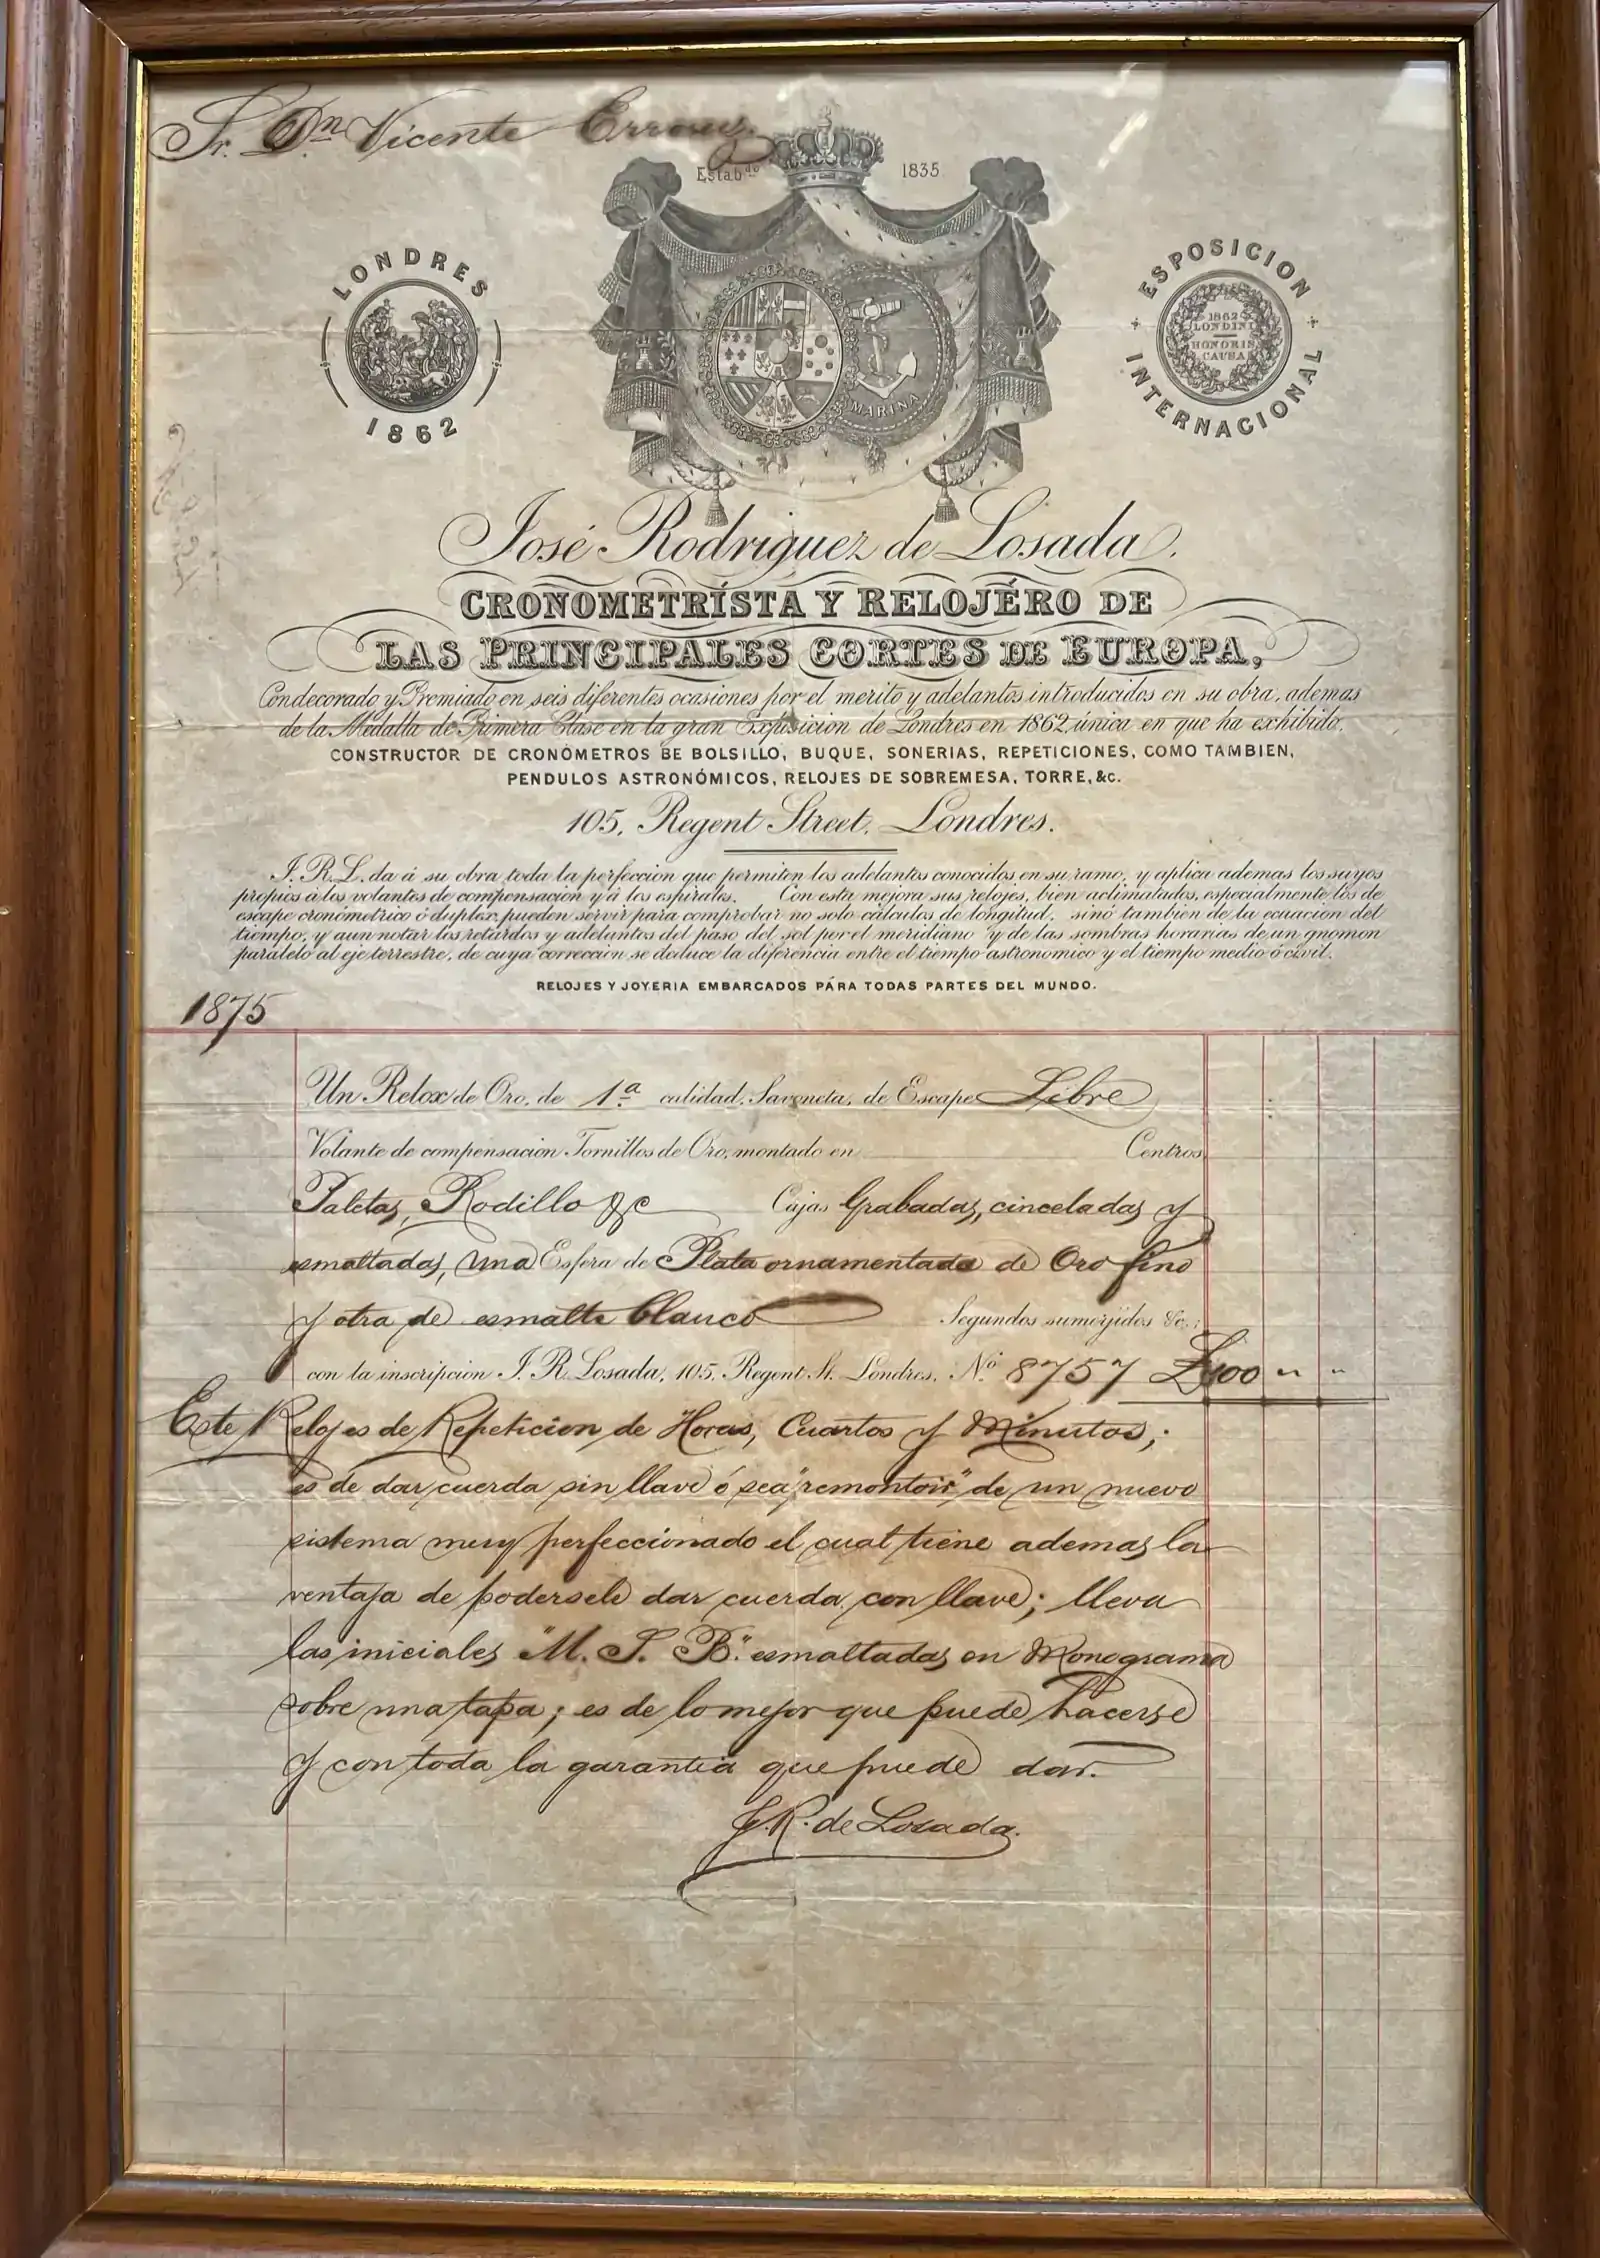 Sr. Dn. Vicente
Estab.do 1835
LONDRES
1862
MARINA
ESPOSICION
INTERNACIONAL
1862
LONDINI
HONORIS
CAUSA
José Rodriguez de Losada.
CRONOMETRÍSTA Y RELOJÉRO DE
LAS PRINCIPALES CORTES DE EUROPA,
Condecorado y Premiado en seis diferentes ocasiones por el merito y adelantos introducidos en su obra, ademas
de la Medalla de Primera Clase en la gran Exposicion de Londres en 1862, única en que ha exhibido.
CONSTRUCTOR DE CRONÓMETROS BE BOLSILLO, BUQUE, SONERIAS, REPETICIONES, COMO TAMBIEN,
PENDULOS ASTRONÓMICOS, RELOJES DE SOBREMESA, TORRE, &c.
105, Regent Street, Londres.
J. R. L. da á su obra toda la perfeccion que permiten los adelantos conocidos en su ramo, y aplica ademas los suyos
propios á los volantes de compensacion y á los espirales. Con esta mejora sus relojes, bien aclimatados, especialmente los de
escape cronómetrico ó duplex, pueden servir para comprobar no solo cálculos de longitud, sinó tambien de la ecuacion del
tiempo, y aun notar los retardos y adelantos del paso del sol por el meridiano y de las sombras horarias de un gnomon
paralelo al eje terrestre, de cuya correccion se deduce la diferencia entre el tiempo astronomico y el tiempo medio ó civil.
RELOJES Y JOYERIA EMBARCADOS PÁRA TODAS PARTES DEL MUNDO.
1875
Un Relox de Oro, de 1.a calidad, Savoneta, de Escape Libre
Volante de compensacion Tornillos de Oro, montado en Centros
Paletas, Rodillo &c Cajas Grabadas, cinceladas y
esmaltadas, una Esfera de Plata ornamentada de Oro fino
y otra de esmalte blanco Segundos sumerjidos &c.:
con la inscripcion J. R. Losada, 105, Regent St. Londres. No. 8757 £100 " "
Este Reloj es de Repeticion de Horas, Cuartos y Minutos;
es de dar cuerda sin llave ó sea "remontoir" de un nuevo
sistema muy perfeccionado el cual tiene ademas la
ventaja de podersele dar cuerda con llave; lleva
las iniciales "M. S. B." esmaltadas en Monograma
sobre una tapa; es de lo mejor que puede hacerse
y con toda la garantia que puede dar.
J. R. de Losada.